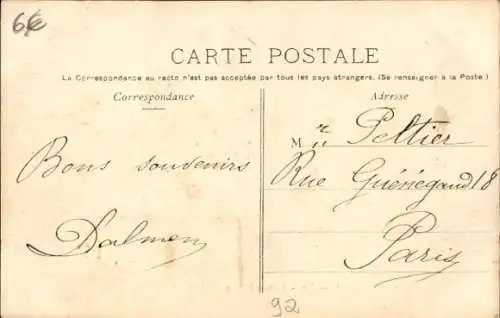 66
CARTE POSTALE
La Correspondance au recto n'est pas acceptée par tous les pays étrangers. (Se renseigner à la Poste)
Correspondance
Adresse
Bons souvenirs
Mr Peltier
Rue Guénégaud 18
Paris
92